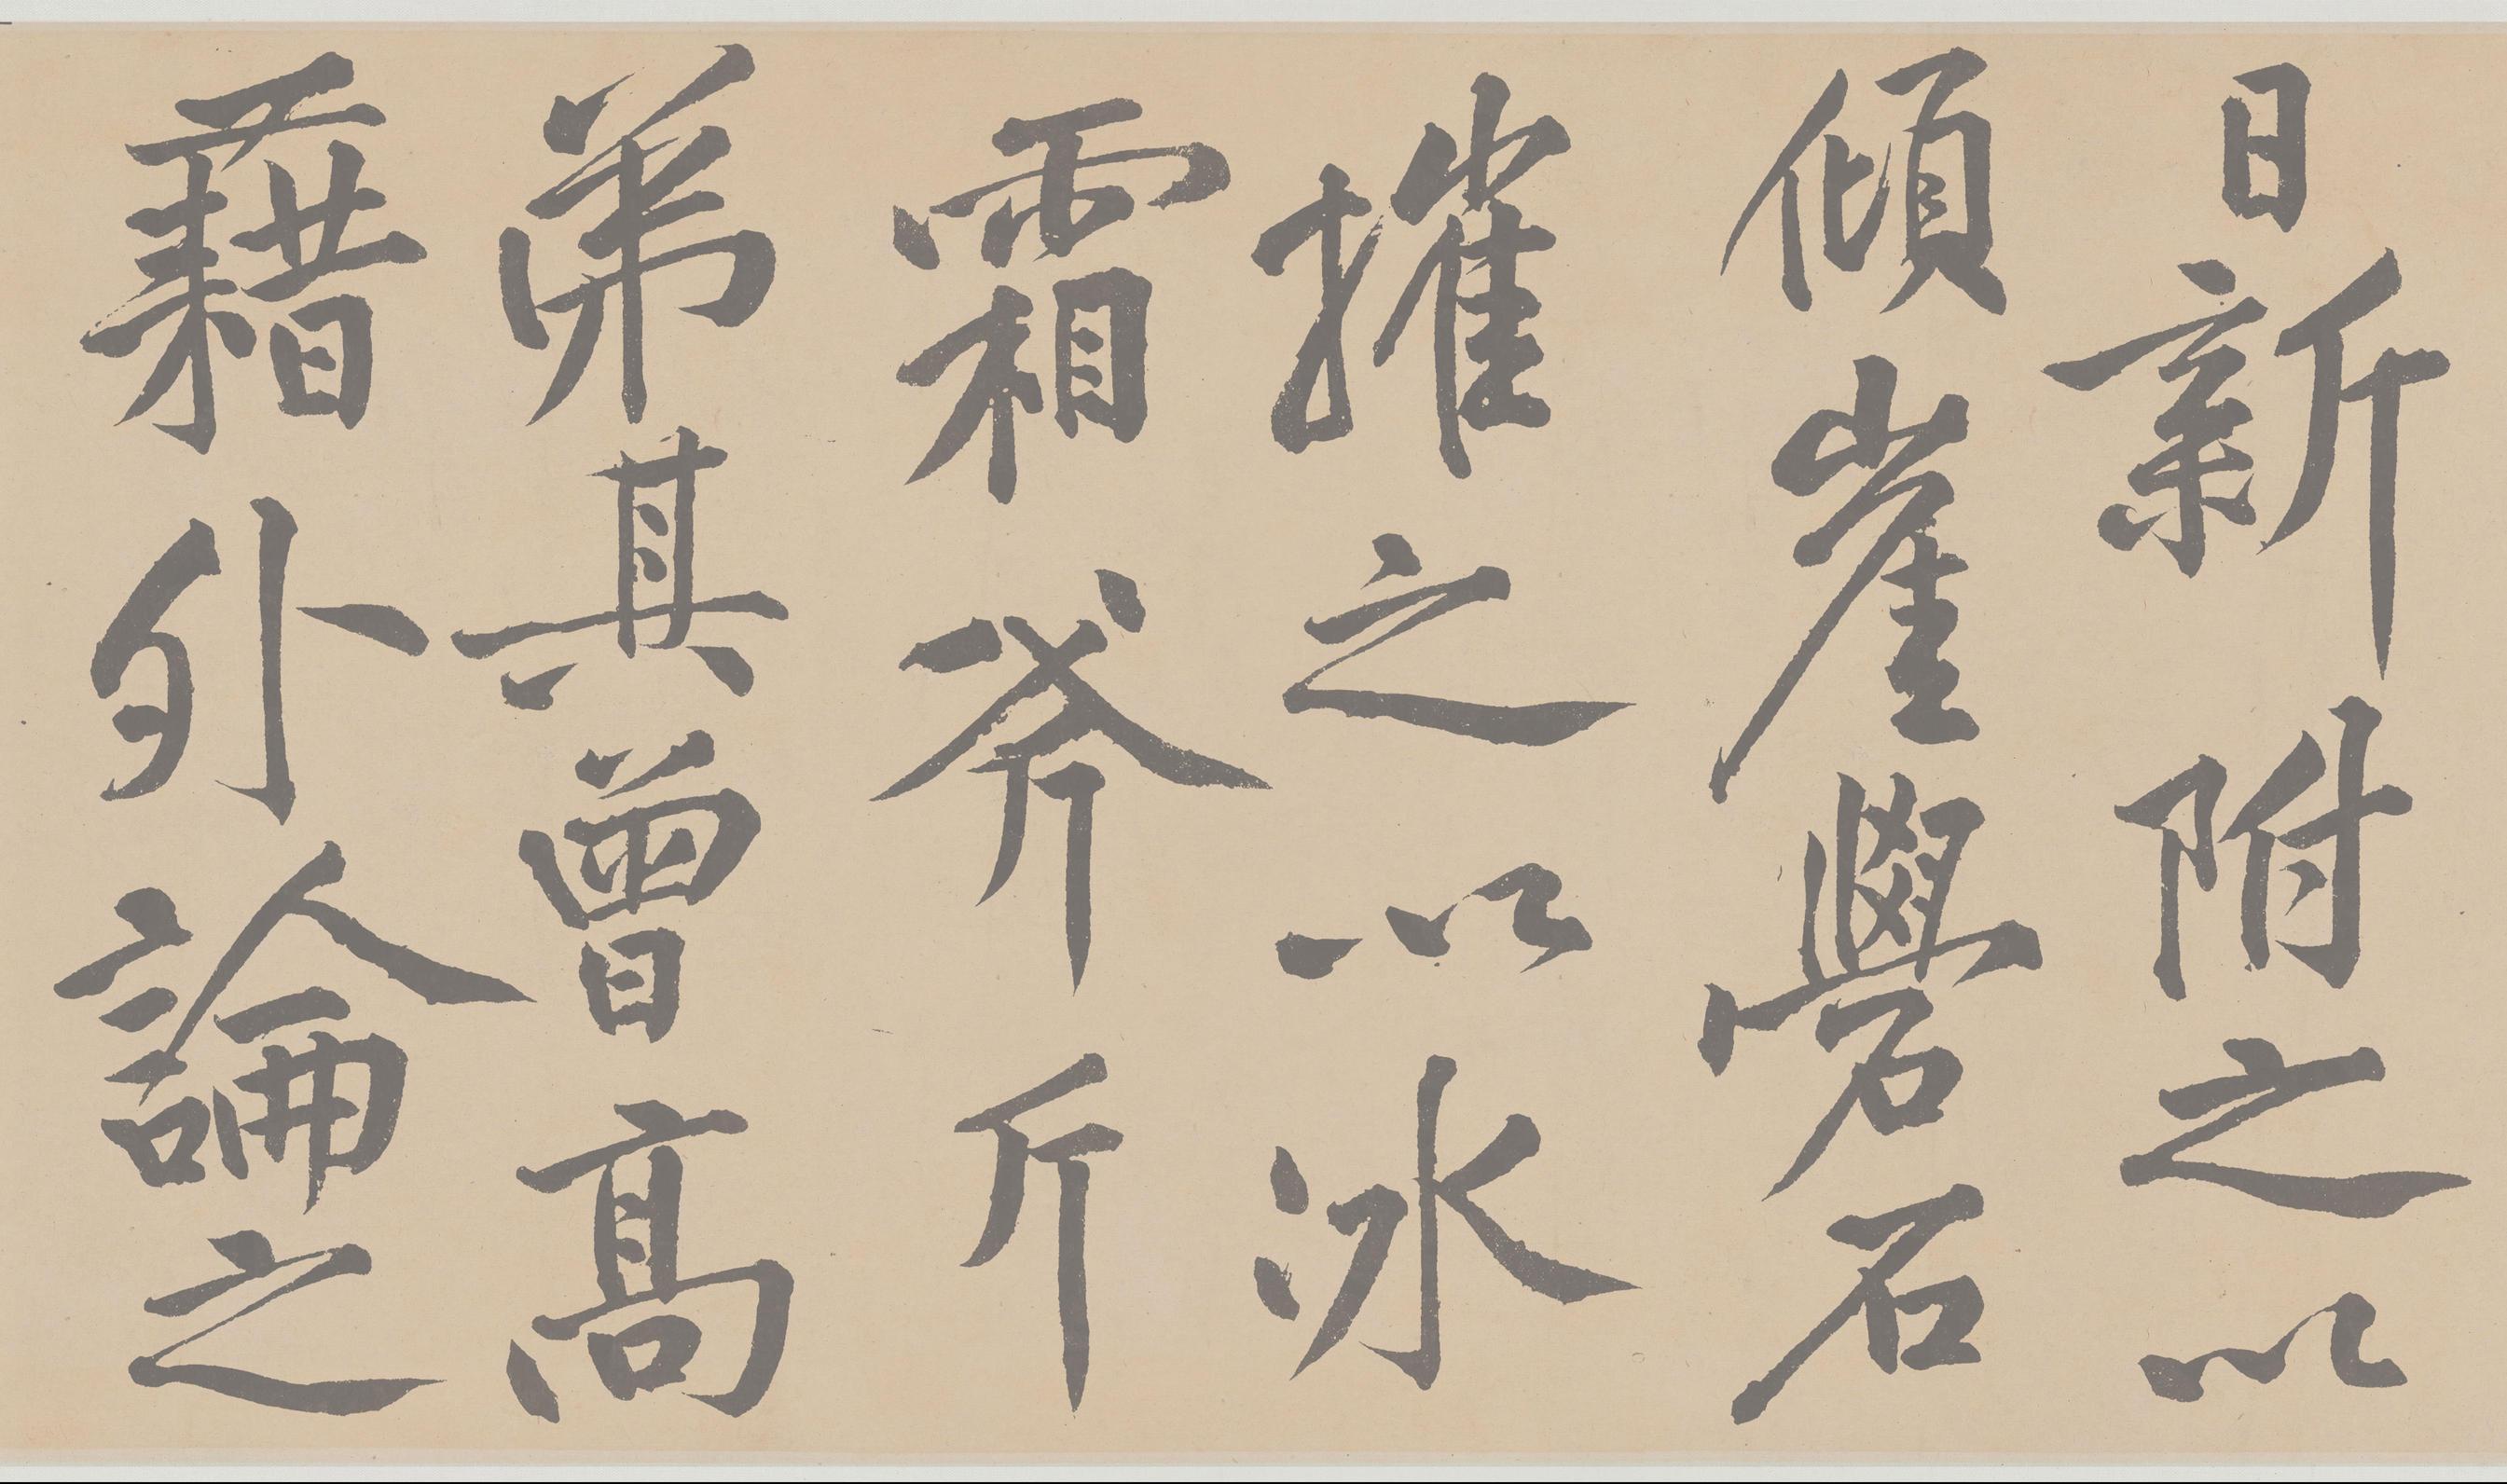 日新附之以
傾崖礐石
摧之以冰
霜斧斤
弟其曾高
藉外論之